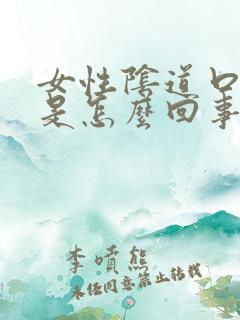 女性陰道口
是怎麼回事
李噴熊
未经同意禁止转载